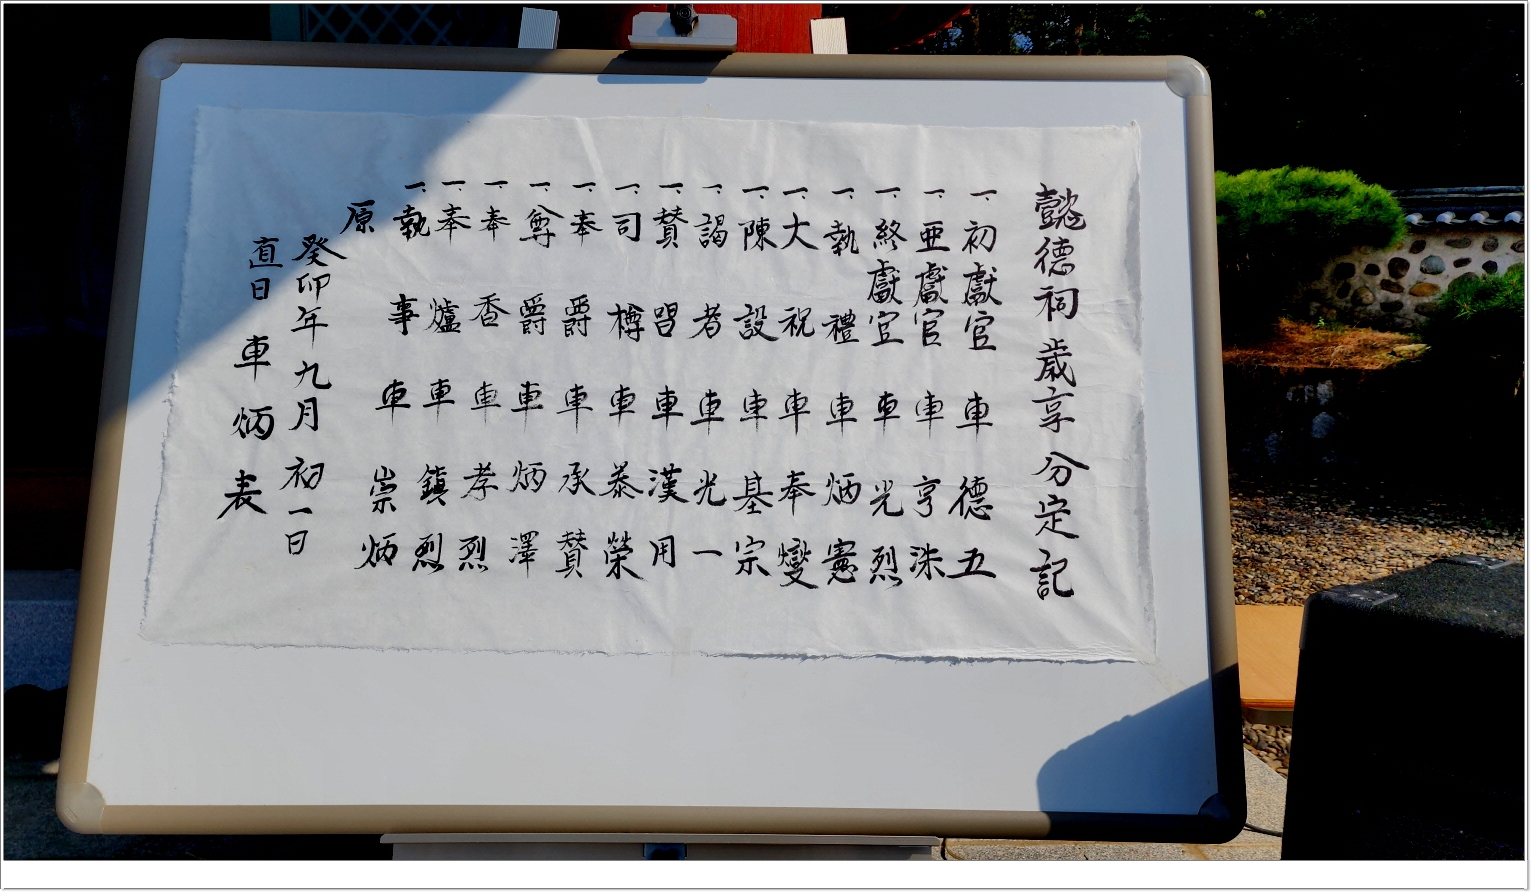 懿德祠歲享分定記
一. 初獻官 車德五
一. 亜獻官 車亨洙
一. 終獻官 車光烈
一. 執禮 車炳憲
一. 大祝 車奉燮
一. 陳設 車基宗
一. 謁者 車光一
一. 賛習 車漢用
一. 司樽 車泰榮
一. 奉爵 車承賛
一. 奠爵 車炳澤
一. 奉香 車孝烈
一. 奉爐 車鎮烈
一. 執事 車崇炳
原
癸卯年九月初一日
直日 車炳表